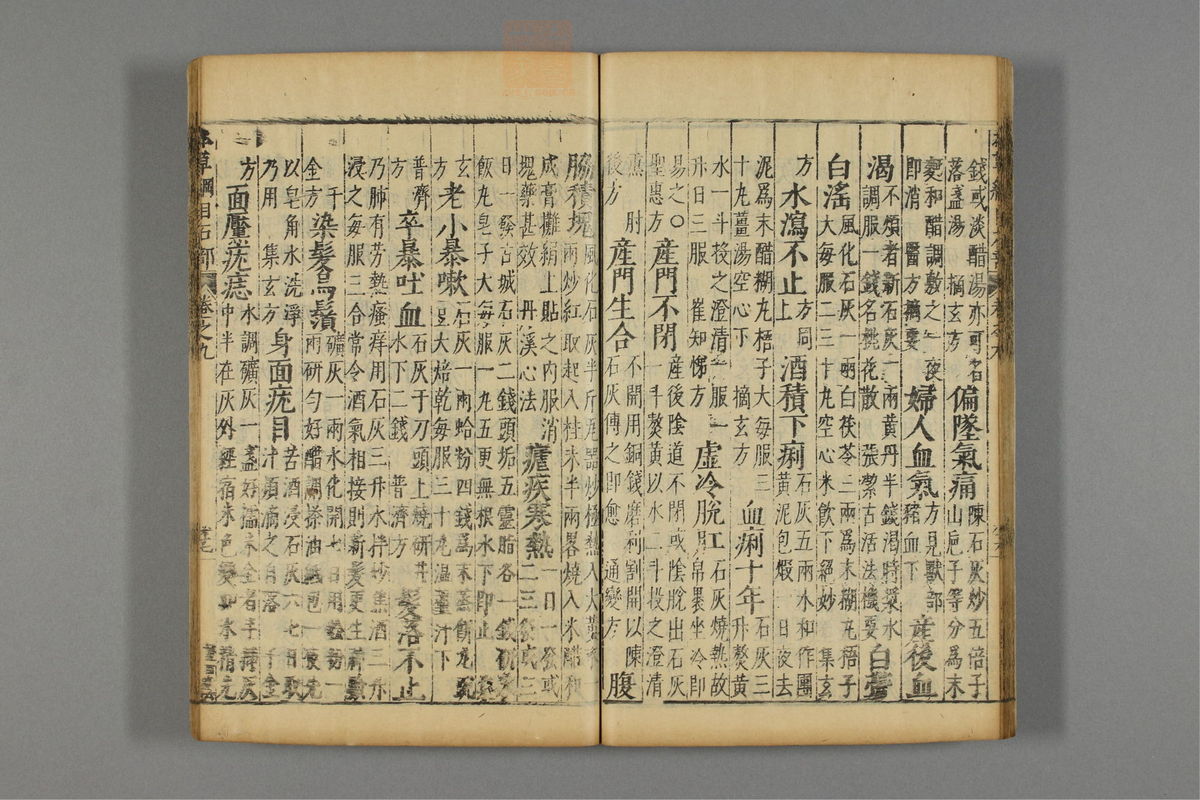 錢或淡醋湯亦可 偏墜氣痛 陳石灰炒五倍子
落盞湯 摘玄方 山巵子等分爲末
麫和醋調敷之一夜
即消 醫方摘要 婦人血氣 方見獸部 豬血下 產後血
渴 不煩者新石灰一兩黃丹半錢渴時漿水
調服一錢名桃花散 張潔古活法機要 白帶
白淫 風化石灰一兩白茯苓三兩爲末糊丸梧子
大每服二三十丸空心米飲下絕妙 集玄
方 水瀉不止 方同上 酒積下痢 石灰五兩水和作團
黃泥包煆一日夜去
泥爲末醋糊丸梧子大每服三
十丸薑湯空心下 摘玄方 血痢十年 石灰三升熬黃
水一斗投之澄清一服一
升日三服 崔知悌方 虛冷脫肛 石灰燒熱故帛裹坐冷即
易之○
聖惠方 產門不閉 產後陰道不閉或陰脫出石灰
一斗熬黃以水二斗投之澄清
熏 肘
後方 產門生合 不開用銅錢磨利割開以陳
石灰傅之即愈 通變方 腹
脇積塊 風化石灰半斤
兩炒紅取起入桂末半兩畧燒入米醋和
成膏攤絹上貼之內服消
塊藥甚效 丹溪心法 瘧疾寒熱 一日一發或
二三
日一發古城石灰二錢頭垢五靈脂各一錢
飯丸皂子大每服一丸五更無根水下即止
玄
方 老小暴嗽 石灰一兩蛤粉四錢爲末蒸餅丸
豆大焙乾每服三十丸溫虀汁下
普濟
方 卒暴吐血 石灰于刀頭上燒研井
水下二錢 普濟方 髮落不止
乃肺有勞熱瘙痒用石灰三升水拌炒焦酒三升
浸之每服三合常令酒氣相接則新髮更生
千
金方 染髮烏鬚 礦灰一兩水化開七日用
兩研勻好醋調搽油
以皂角水洗淨
乃用 集玄方 身面疣目 苦酒浸石灰六七日取
汁頻滴之自落 千金
方 面黶疣痣 水調礦灰一盞好糯米全者半
冲半在灰外經宿米色變如水精
本草綱目石部 卷之九